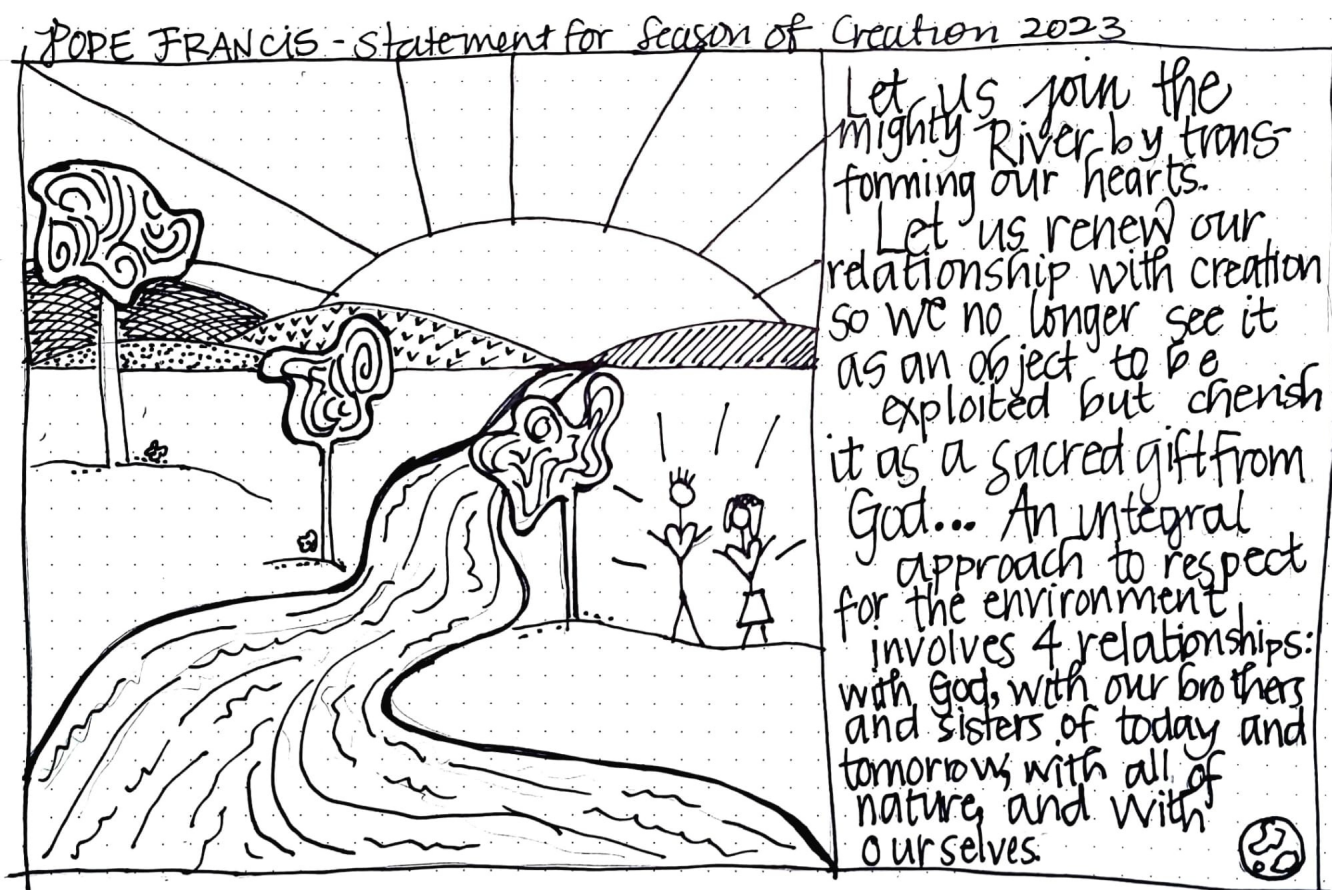 POPE FRANCIS - Statement for Season of Creation 2023
Let us join the
mighty River by trans-
forming our hearts.
Let us renew our
relationship with creation
so we no longer see it
as an object to be
exploited but cherish
it as a sacred gift from
God... An integral
approach to respect
for the environment
involves 4 relationships:
with God, with our brothers
and sisters of today and
tomorrow, with all of
nature, and with
ourselves.